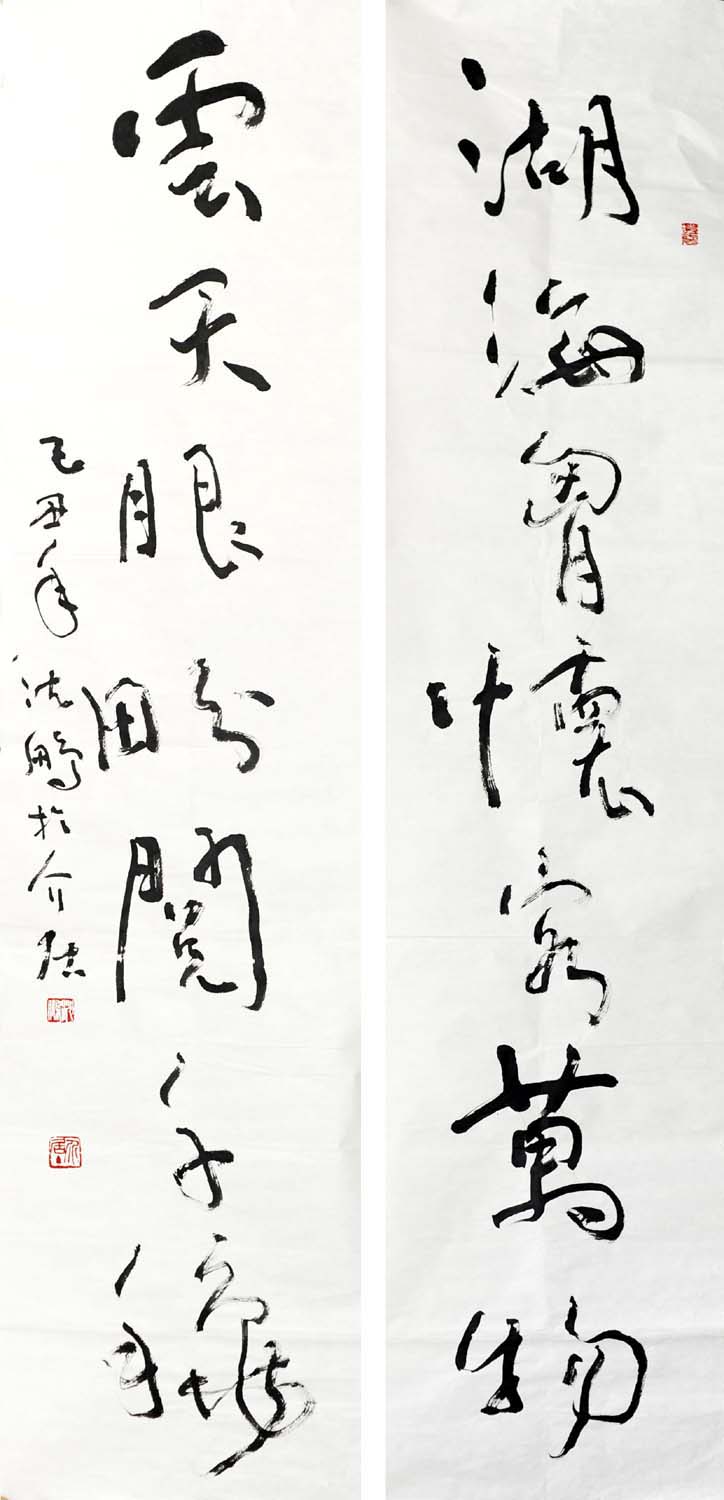 湖海胷懷容萬物
雲天眼畍閱千龝
己丑年沈鵬於介居